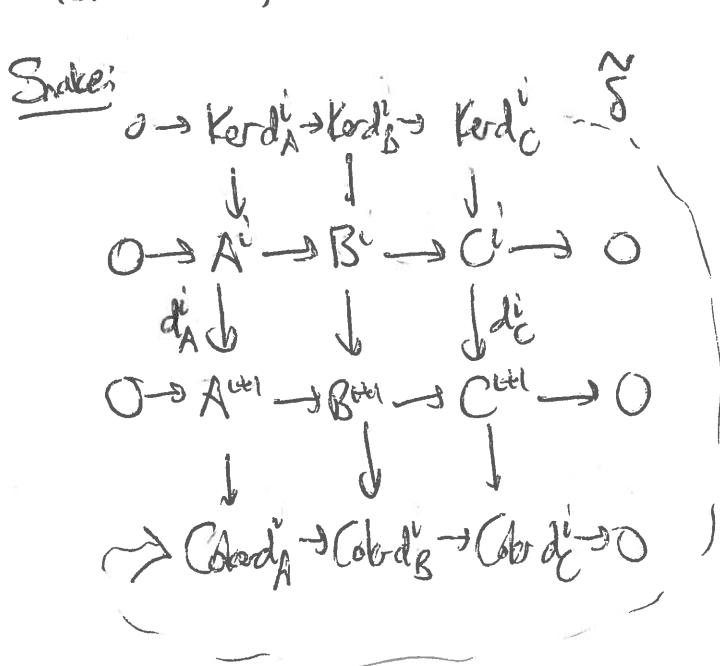 Snake:
δ̃
0 → Ker d_A^i → Ker d_B^i → Ker d_C^i
0 → A^i → B^i → C^i → 0
d_A^i d_C^i
0 → A^{i+1} → B^{i+1} → C^{i+1} → 0
Coker d_A^i → Coker d_B^i → Coker d_C^i → 0